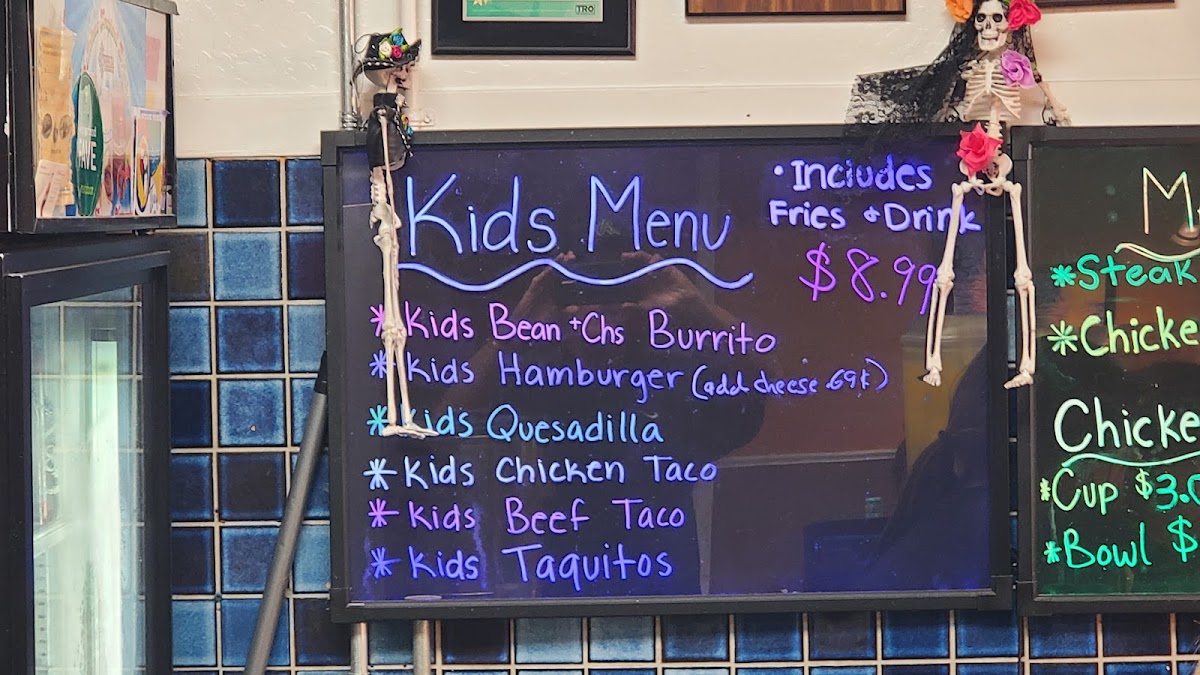 TRO
Kids Menu
• Includes
Fries & Drink
$8.99
* Kids Bean + Chs Burrito
* Kids Hamburger (add cheese .69¢)
* Kids Quesadilla
* Kids Chicken Taco
* Kids Beef Taco
* Kids Taquitos
M
* Steak
* Chicke
Chicke
* Cup $3.0
* Bowl $